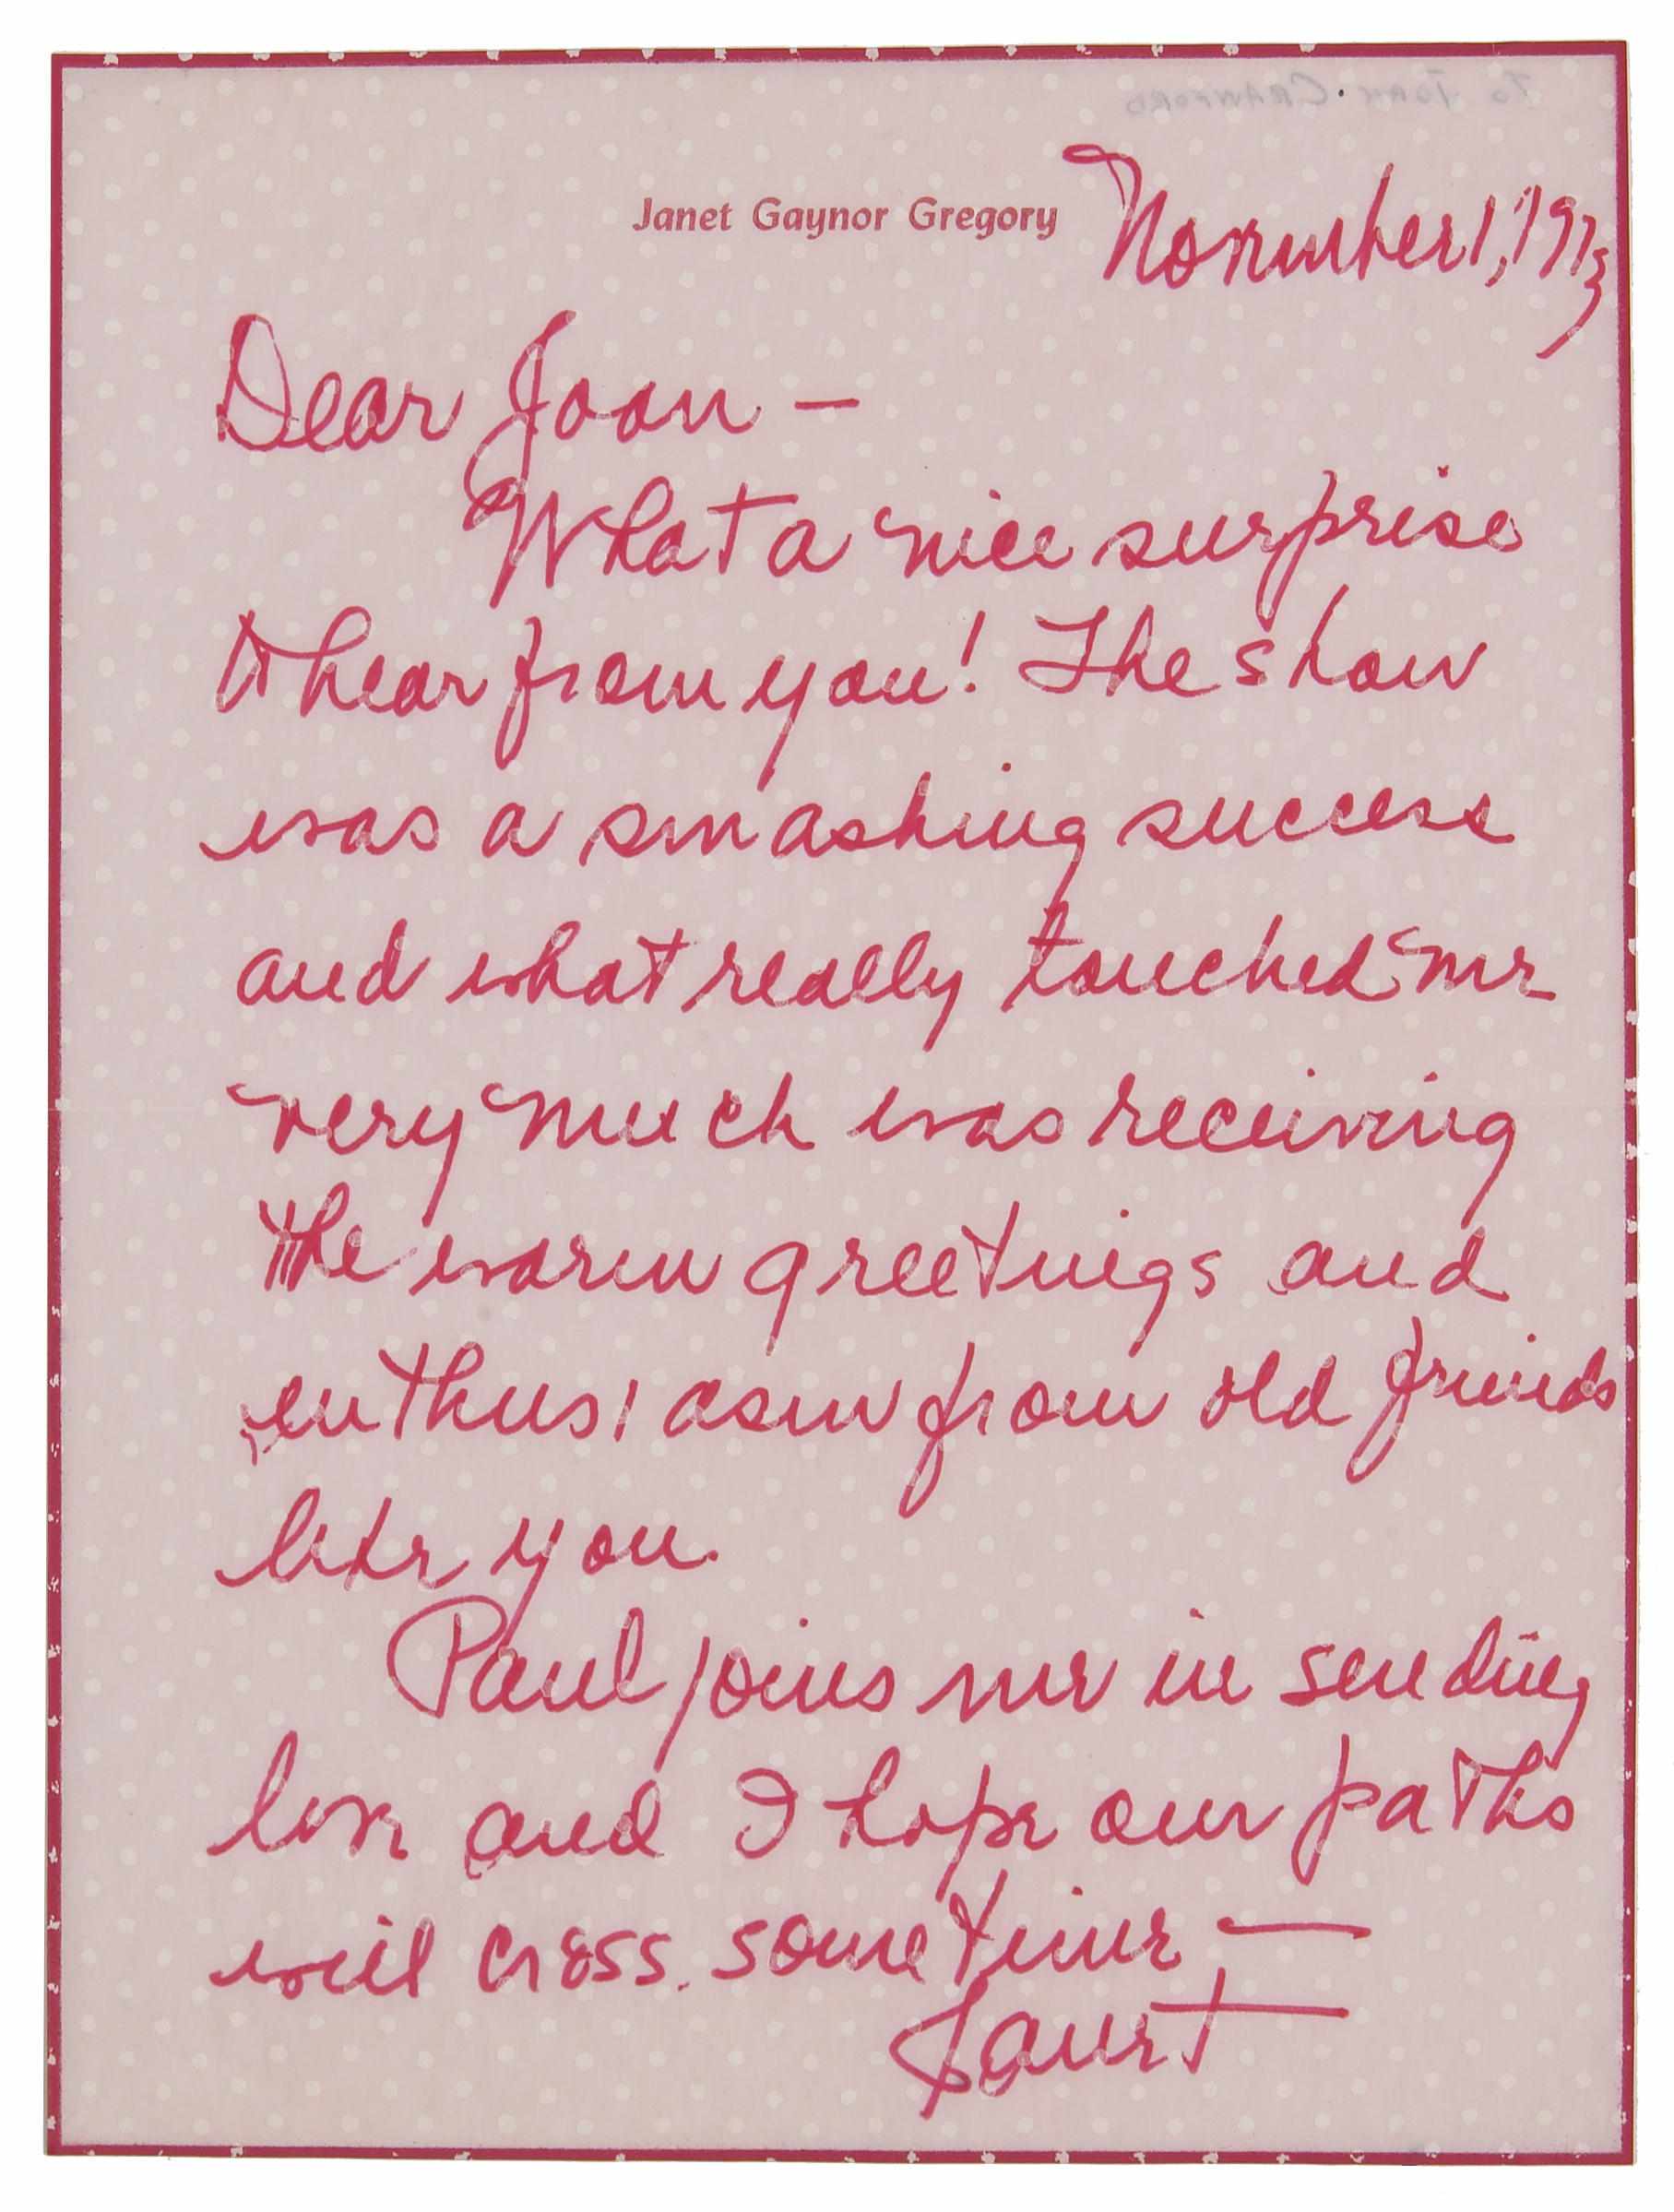 To Joan Crawford
Janet Gaynor Gregory
November 1, 1973
Dear Joan —
What a nice surprise
to hear from you! The show
was a smashing success
and what really touched me
very much was receiving
the warm greetings and
enthusiasm from old friends
like you.
Paul joins me in sending
love and I hope our paths
will cross sometime —
Janet